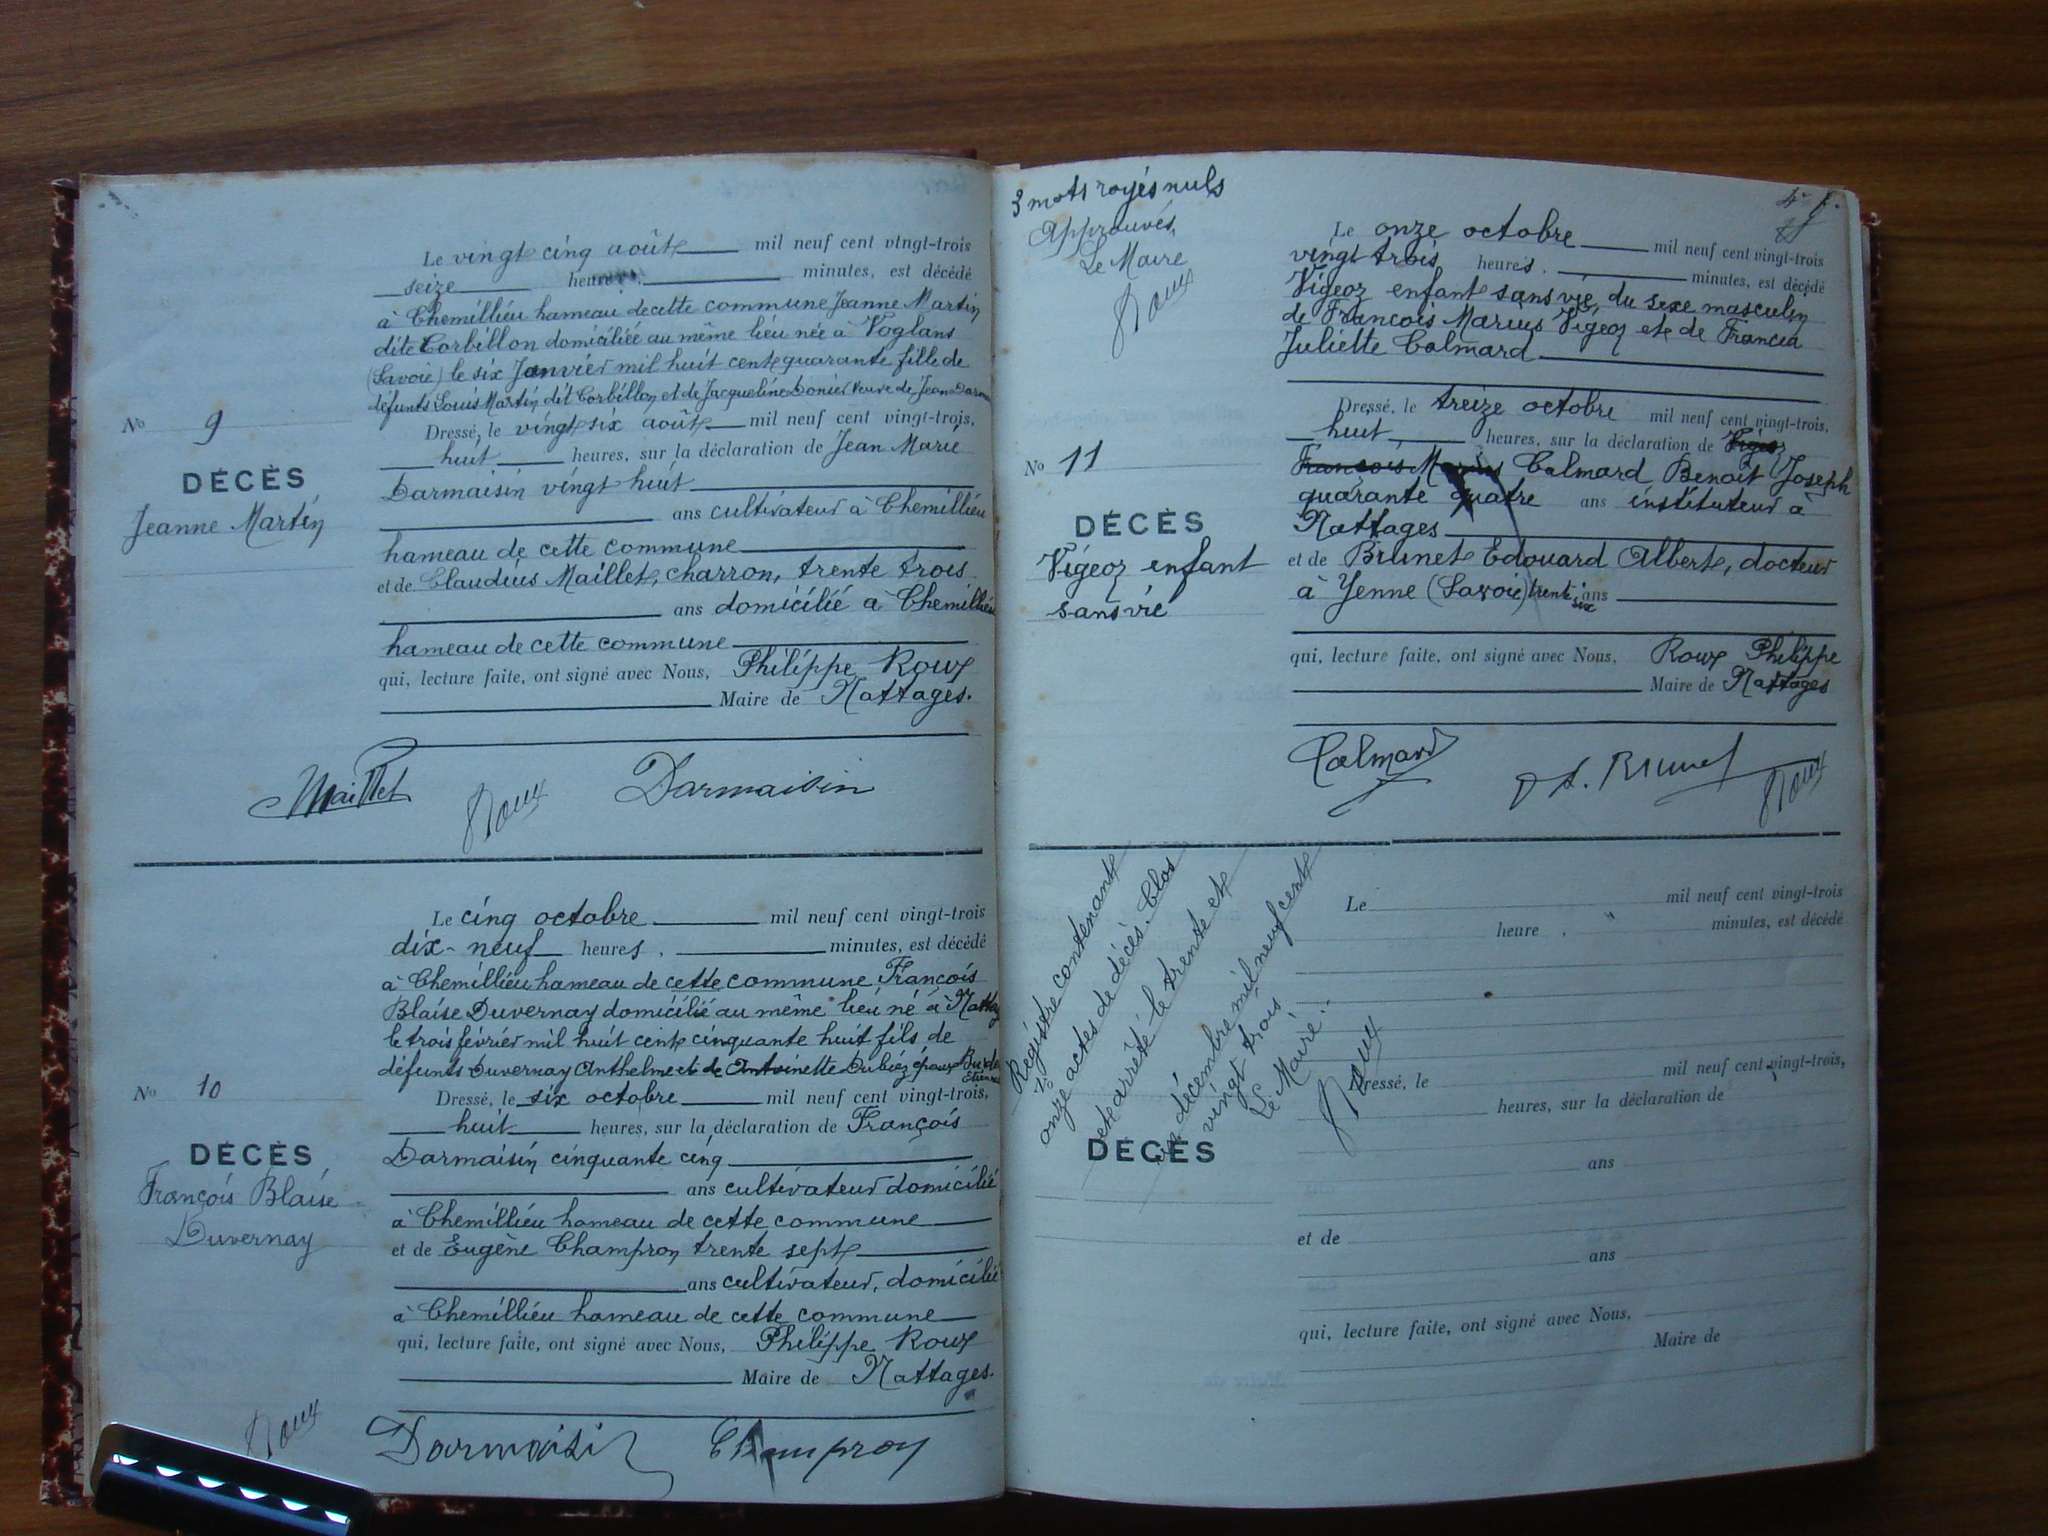 Le vingt cinq août mil neuf cent vingt-trois
seize heures, minutes, est décédé
à Chemillieu hameau de cette commune Jeanne Martin
dite Corbillon domiciliée au même lieu née à Voglans
(Savoie) le six Janvier mil huit cent quarante fille de
défunts Louis Martin dit Corbillon et de Jacqueline veuve de Jean
No 9
Dressé, le vingt six août mil neuf cent vingt-trois,
huit heures, sur la déclaration de Jean Marie
DÉCÈS
Jeanne Martin
Darmaisin vingt huit
ans cultivateur à Chemillieu
hameau de cette commune
et de Claudius Maillet, charron, trente trois
ans domicilié à Chemillieu
hameau de cette commune
qui, lecture faite, ont signé avec Nous, Philippe Roux
Maire de Nattages.
Maillet Roux Darmaisin
Le cinq octobre mil neuf cent vingt-trois
dix-neuf heures, minutes, est décédé
à Chemillieu hameau de cette commune François
Blaise Duvernay domicilié au même lieu né à
le trois février mil huit cent cinquante huit fils de
défunts Duvernay Anthelme et de Antoinette Dubiez époux
No 10
Dressé, le six octobre mil neuf cent vingt-trois,
huit heures, sur la déclaration de François
DÉCÈS
François Blaise
Duvernay
Darmaisin cinquante cinq
ans cultivateur domicilié
à Chemillieu hameau de cette commune
et de Eugène Champroy trente sept
ans cultivateur, domicilié
à Chemillieu hameau de cette commune
qui, lecture faite, ont signé avec Nous, Philippe Roux
Maire de Nattages.
Roux Darmaisin Champroy
3 mots rayés nuls
Approuvés,
Le Maire
Roux
Le onze octobre mil neuf cent vingt-trois
vingt trois heures, minutes, est décédé
Vigeoz enfant sans vie, du sexe masculin
de François Marius Vigeoz et de Francia
Juliette Calmard
Dressé, le treize octobre mil neuf cent vingt-trois,
huit, heures, sur la déclaration de Vigeoz
No 11
François Marius Calmard Benoit Joseph
quarante quatre ans instituteur à
Nattages
DÉCÈS
Vigeoz enfant
sans vie
et de Brunet Edouard Albert, docteur
à Yenne (Savoie) trente six ans
qui, lecture faite, ont signé avec Nous, Roux Philippe
Maire de Nattages
Calmard Brunet Roux
Registre contenant
onze actes de décès. Clos
et arrêté le trente et
un décembre mil neuf cent
vingt trois
Le Maire.
Roux
Le mil neuf cent vingt-trois
heure, minutes, est décédé
Dressé, le mil neuf cent vingt-trois,
heures, sur la déclaration de
DÉCÈS
ans
et de
ans
qui, lecture faite, ont signé avec Nous,
Maire de